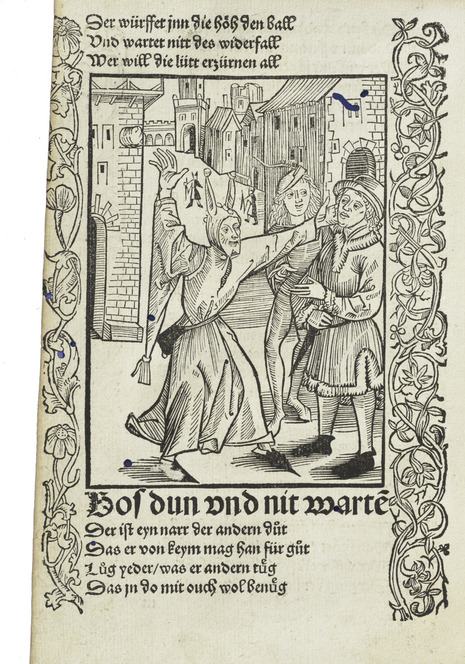 Der würffet jnn die höh den ball
Vnd wartet nitt des widerfall
Wer will die lütt erzürnen all
Bos dun vnd nit wartē
Der ist eyn narr der andern důt
Das er von keym mag han für gůt
Lůg yeder / was er andern tuͤg
Das jn do mit ouch wol benuͤg